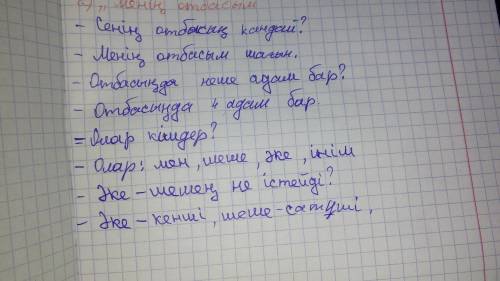 а) „ Менің отбасым
- Сенің отбасың қандай?
- Менің отбасым шағын.
- Отбасыңда неше адам бар?
- Отбасыңда 4 адам бар.
= Олар кімдер?
- Олар: мен, шеше, әке, інім
- Әке-шешең не істейді?
- Әке - кенші, шеше-сатушы,